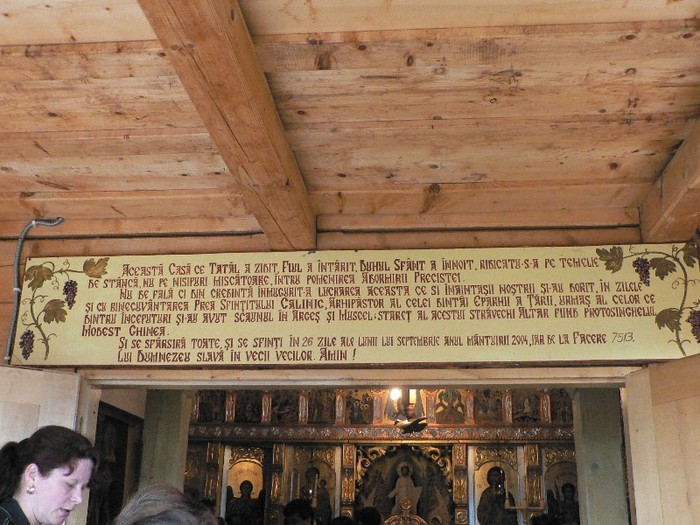 Această Casă ce Tatăl a zidit, Fiul a întărit, Duhul Sfânt a înnoit, ridicatu-s-a pe temelie
de stâncă, nu pe nisipuri mișcătoare, întru pomenirea Adormirii Precistei.
Nu de fală ci din credință înmugurit-a lucrarea aceasta ce și înaintașii noștri și-au dorit, în zilele
și cu binecuvântarea Prea Sfințitului Calinic, arhipăstor al celei dintâi Eparhii a Țării, urmaș al celor ce
dintru începuturi și-au avut scaunul în Argeș și Mușcel; stareț al acestui străvechi Altar fiind Protosinghelul
Modest Ghinea.
Și se săvârșiră toate, și se sfinți în 26 zile ale lunii lui Septembrie anul mântuirii 2004, iar de la Facere 7513.
Lui Dumnezeu slavă în vecii vecilor. Amin !